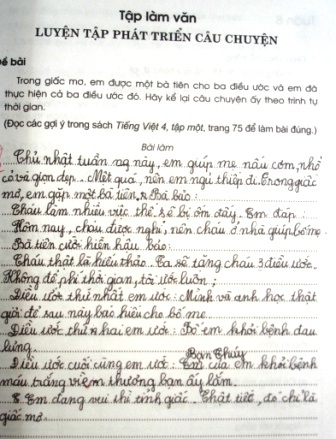 Tập làm văn
LUYỆN TẬP PHÁT TRIỂN CÂU CHUYỆN
Đề bài
Trong giấc mơ, em được một bà tiên cho ba điều ước và em đã
thực hiện cả ba điều ước đó. Hãy kể lại câu chuyện ấy theo trình tự
thời gian.
(Đọc các gợi ý trong sách Tiếng Việt 4, tập một, trang 75 để làm bài đúng.)
Bài làm
Chủ nhật tuần này, em giúp mẹ nấu cơm, nhổ
cỏ và dọn dẹp. Mệt quá, nên em ngủ thiếp đi. Trong giấc
mơ, em gặp một bà tiên, Bà bảo:
Cháu làm nhiều việc thế sẽ bị ốm đấy. Em đáp:
Hôm nay, cháu được nghỉ, nên cháu ở nhà giúp bố mẹ.
Bà tiên cười hiền hậu bảo:
Cháu thật là hiếu thảo. Ta sẽ tặng cháu 3 điều ước.
Không để phí thời gian, tôi ước luôn:
Điều ước thứ nhất em ước: Mình và anh học thật
giỏi để sau này báo hiếu cho bố mẹ.
Điều ước thứ hai em ước: Bố em khỏi bệnh đau
lưng.
Bạn Thúy
Điều ước cuối cùng em ước: của em khỏi bệnh
máu trắng vì em thương bạn ấy lắm.
Em đang vui thì tỉnh giấc. Thật tiếc, đó chỉ là
giấc mơ.